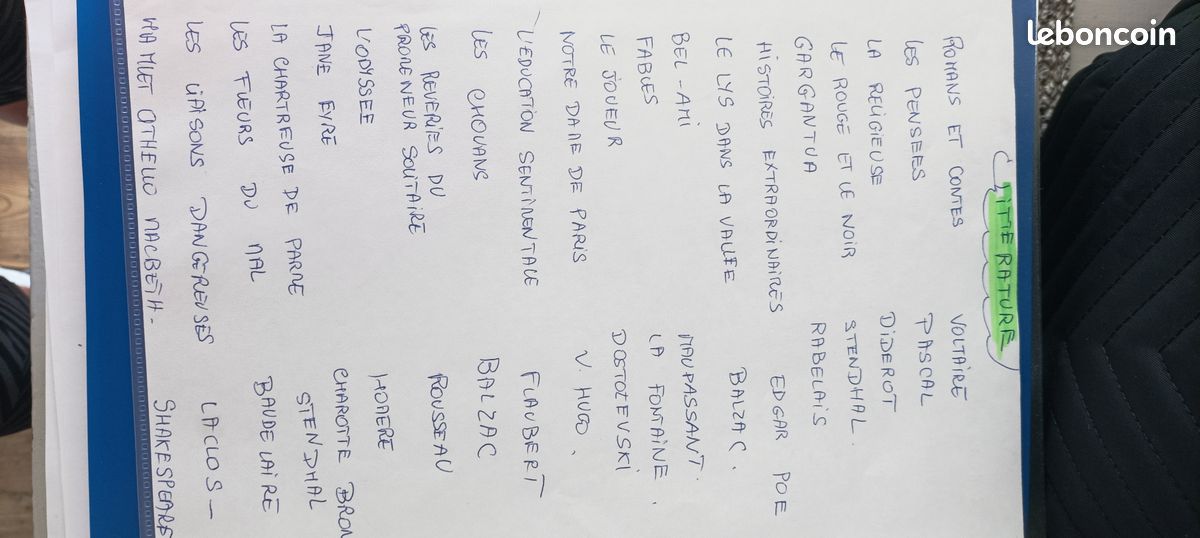 leboncoin
LITTERATURE
ROMANS ET CONTES VOLTAIRE
LES PENSEES PASCAL
LA RELIGIEUSE DIDEROT
LE ROUGE ET LE NOIR STENDHAL.
GARGANTUA RABELAIS
HISTOIRES EXTRAORDINAIRES EDGAR POE
LE LYS DANS LA VALLEE BALZAC.
BEL-AMI MAUPASSANT.
FABLES LA FONTAINE.
LE JOUEUR DOSTOIEVSKI
NOTRE DAME DE PARIS V. HUGO.
L'EDUCATION SENTIMENTALE FLAUBERT
LES CHOUANS BALZAC
LES REVERIES DU
PROMENEUR SOLITAIRE ROUSSEAU
L'ODYSSEE HOMERE
JANE EYRE CHAROTTE BRON
LA CHARTREUSE DE PARME STENDHAL
LES FLEURS DU MAL BAUDELAIRE
LES LIAISONS DANGEREUSES LACLOS -
HAMLET OTHELLO MACBETH. SHAKESPEARE